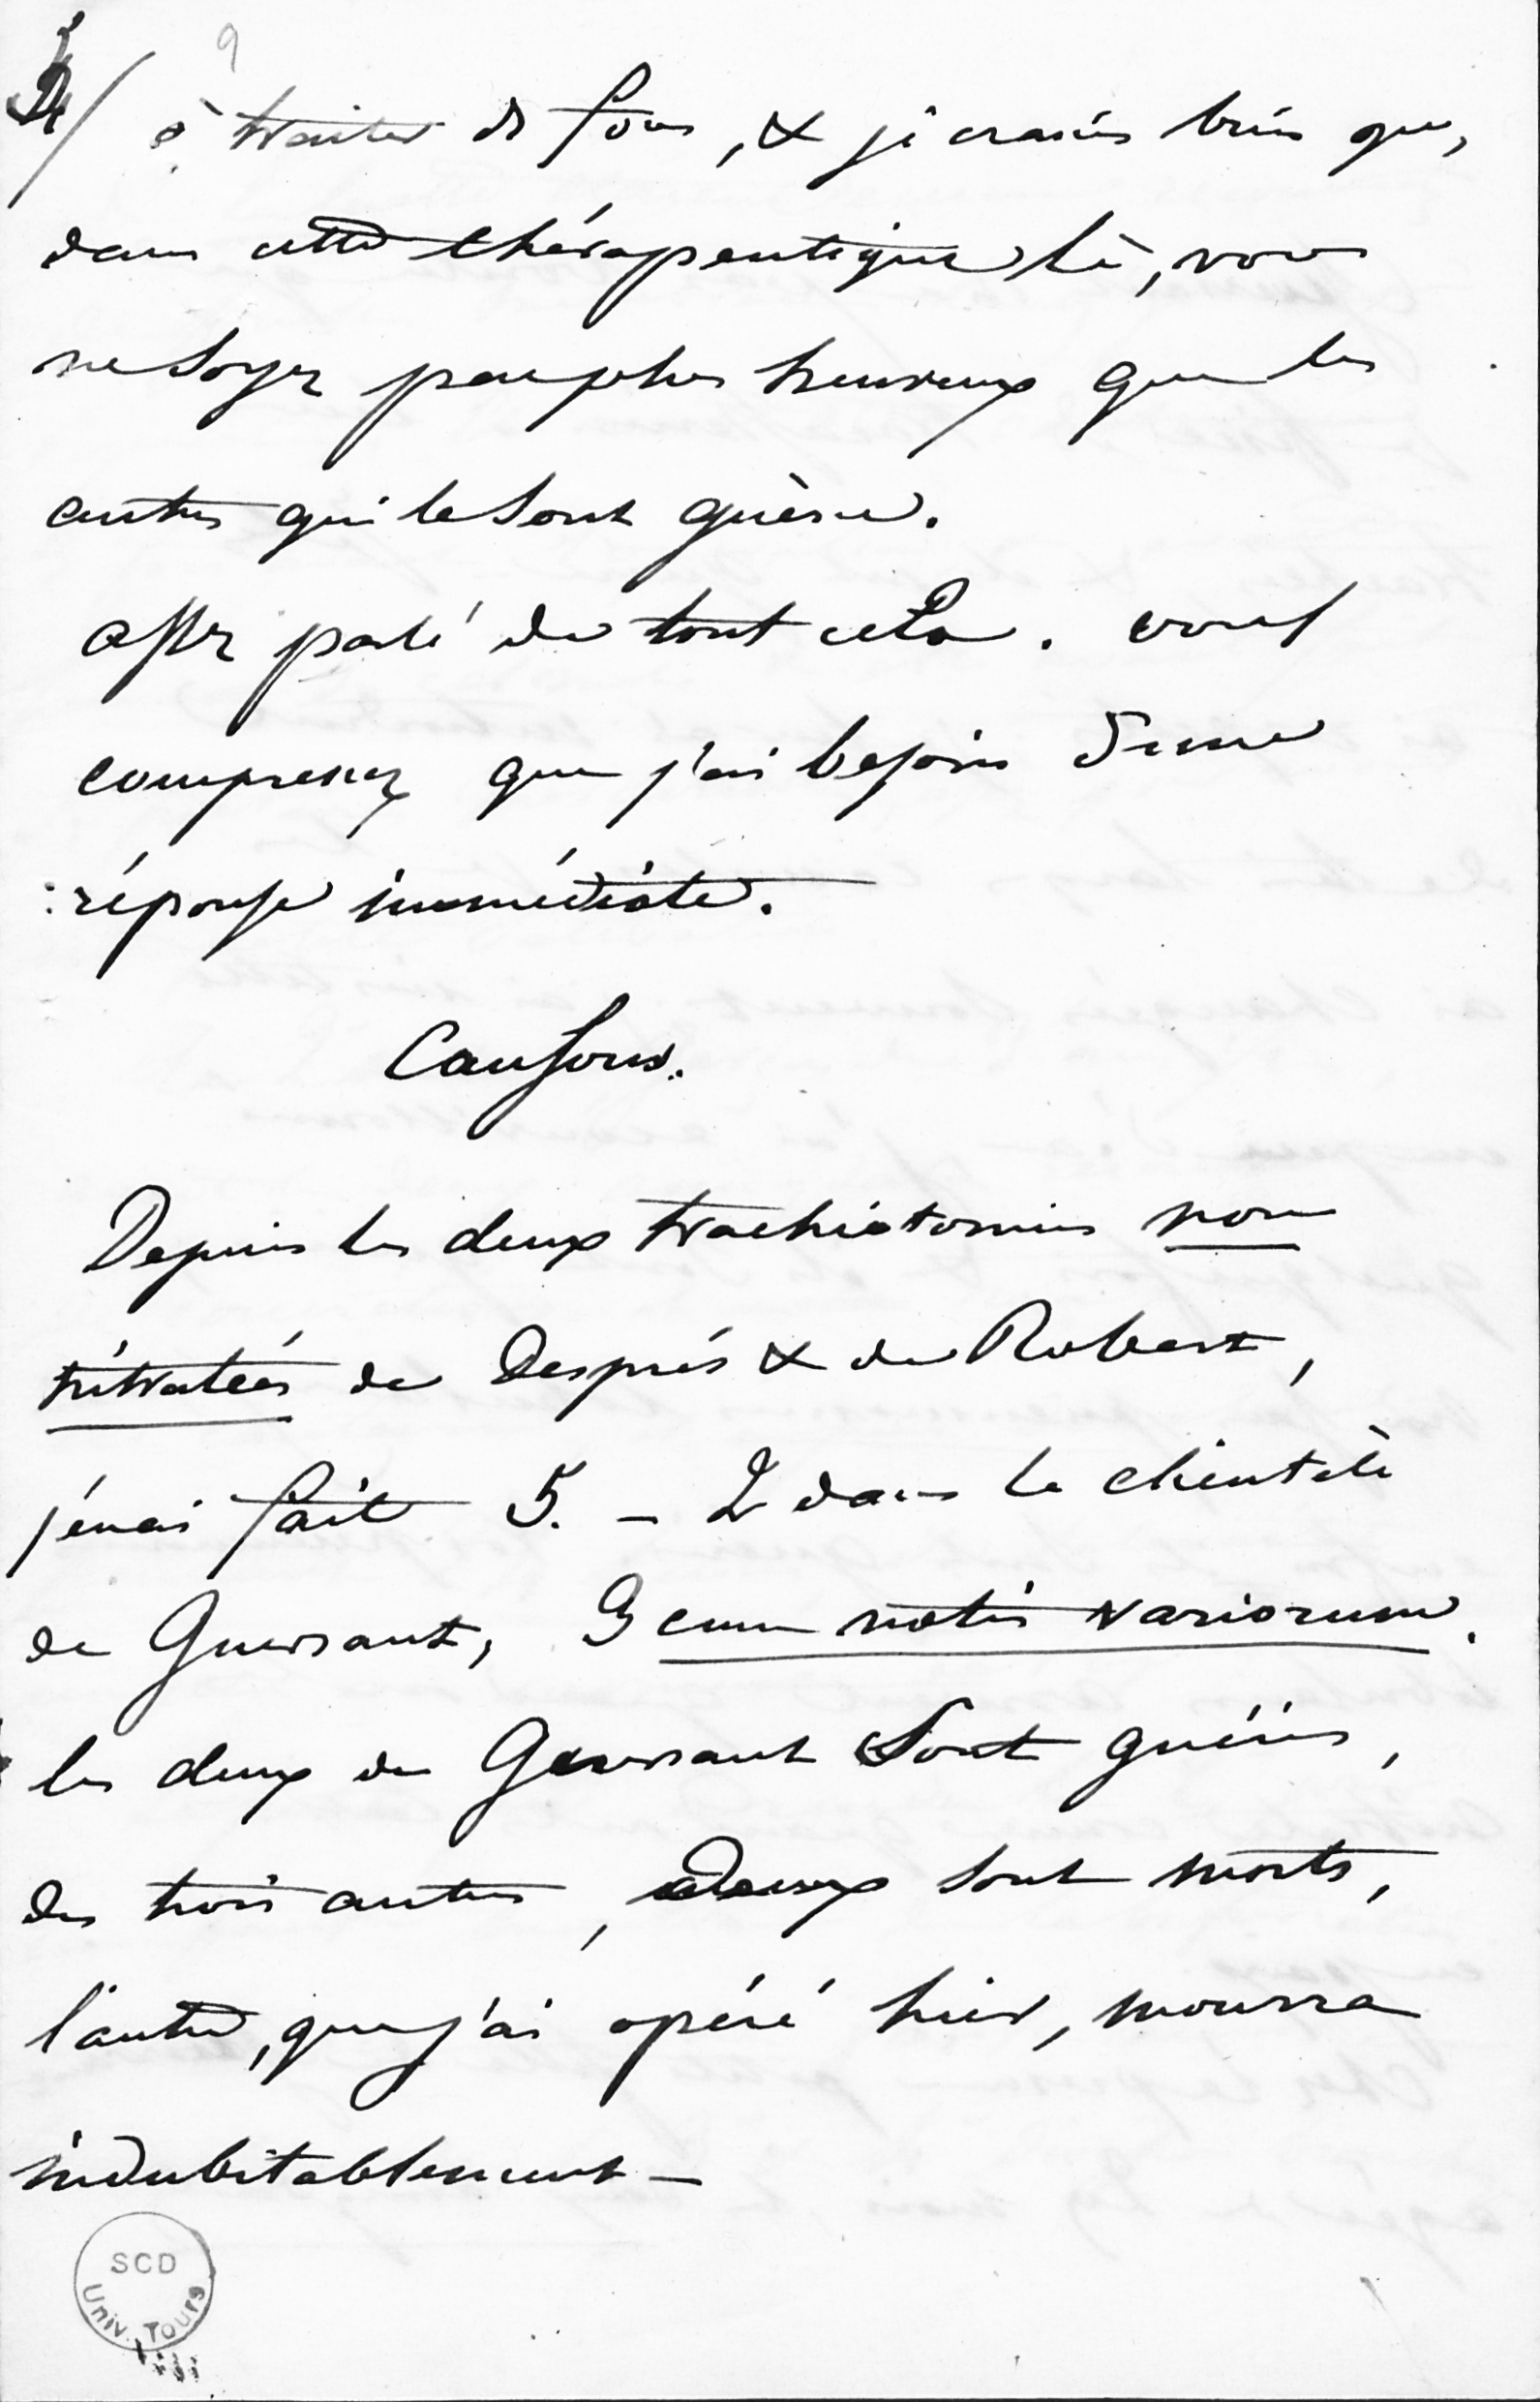 à traiter de fous, & je crains bien que,
dans cette thérapeutique là, vous
ne soyez pas plus heureux que les
autres qui le sont guère.
assez parlé de tout cela. vous
comprenez que j'ai besoin d'une
réponse immédiate.
Causons.
Depuis les deux trachéotomies non
nitratées de Després & de Robert,
j'en ai fait 5. - 2 dans la clientèle
de Guersant, 3 cum notis variorum.
les deux de Guersant sont guéris,
des trois autres, deux sont morts,
l'autre, que j'ai opéré hier, mourra
indubitablement -
SCD
Univ. Tours